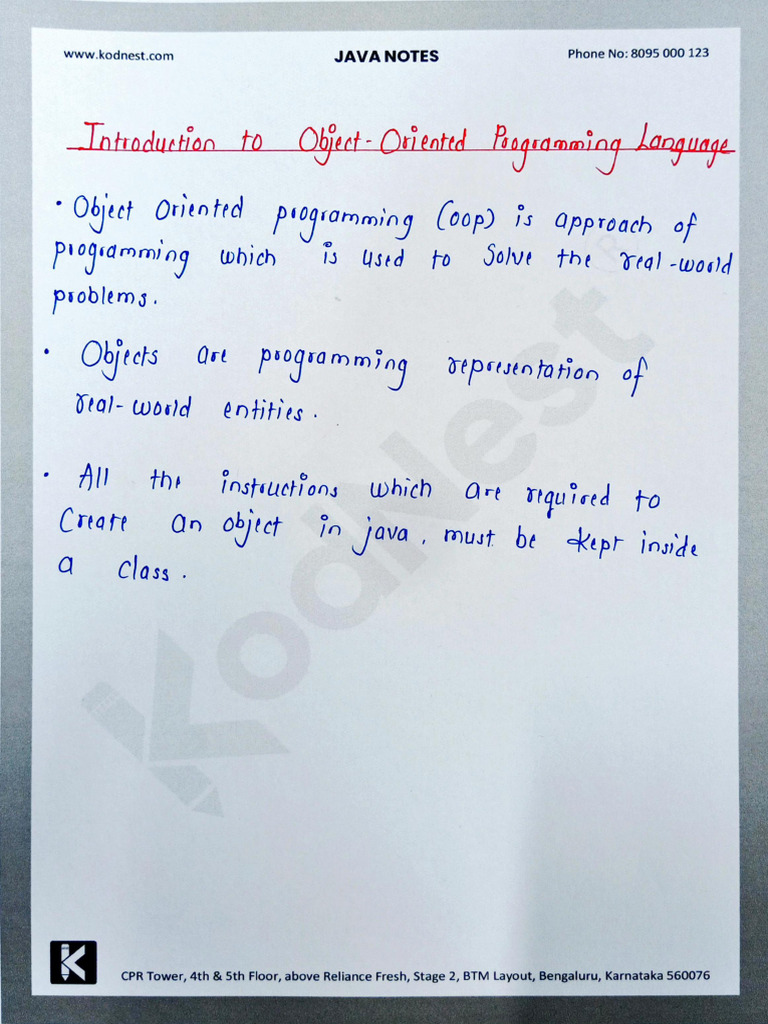 www.kodnest.com JAVA NOTES Phone No: 8095 000 123
Introduction to Object-Oriented Programming Language
• Object Oriented programming (OOP) is approach of
programming which is used to Solve the real-world
problems.
• Objects are programming representation of
real-world entities.
• All the instructions which are required to
Create an object in java, must be kept inside
a class.
KodNest
CPR Tower, 4th & 5th Floor, above Reliance Fresh, Stage 2, BTM Layout, Bengaluru, Karnataka 560076